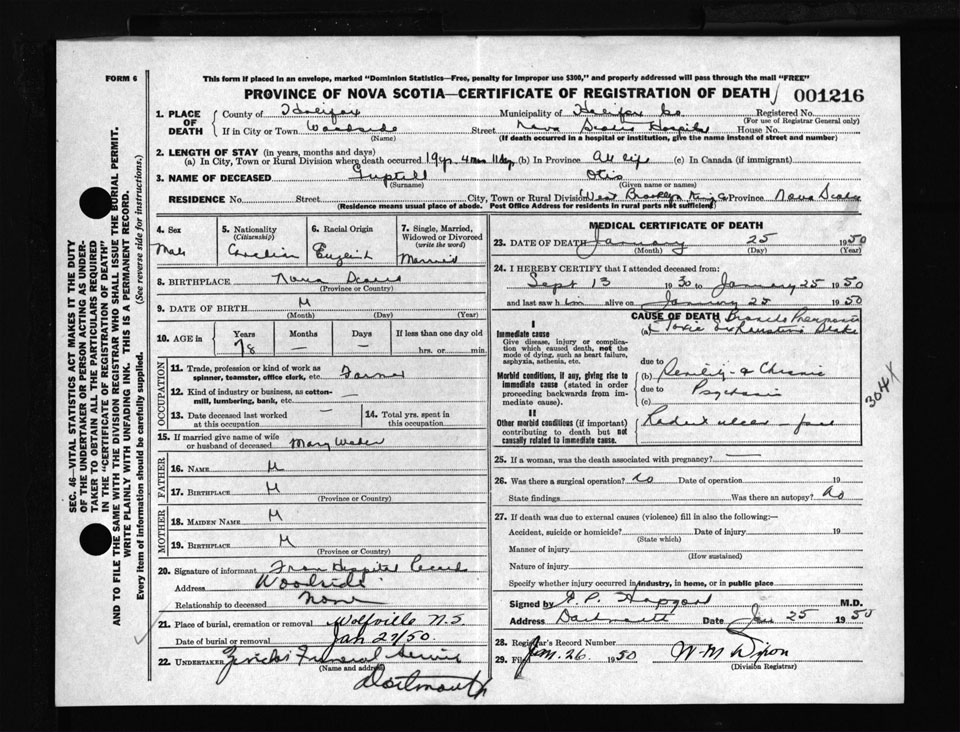 FORM 6
This form if placed in an envelope, marked "Dominion Statistics—Free, penalty for improper use $300," and properly addressed will pass through the mail "FREE"
PROVINCE OF NOVA SCOTIA—CERTIFICATE OF REGISTRATION OF DEATH 001216
1. PLACE OF DEATH
County of Halifax Municipality of Halifax Co. Registered No.
(For use of Registrar General only)
If in City or Town Woodside Street Nova Scotia Hospital House No.
(Name) (If death occurred in a hospital or institution, give the name instead of street and number)
2. LENGTH OF STAY (in years, months and days)
(a) In City, Town or Rural Division where death occurred 19 yr. 4 mos 11 days (b) In Province All life (c) In Canada (if immigrant)
3. NAME OF DECEASED Guptill Otis
(Surname) (Given name or names)
RESIDENCE No. Street City, Town or Rural Division West Brooklyn Kings Province Nova Scotia
(Residence means usual place of abode. Post Office Address for residents in rural parts not sufficient)
4. Sex Male
5. Nationality (Citizenship) Canadian
6. Racial Origin English
7. Single, Married, Widowed or Divorced (write the word) Married
8. BIRTHPLACE Nova Scotia
(Province or Country)
9. DATE OF BIRTH
(Month) (Day) (Year)
10. AGE in Years Months Days If less than one day old
78 — — hrs. or min.
OCCUPATION
11. Trade, profession or kind of work as spinner, teamster, office clerk, etc. Farmer
12. Kind of industry or business, as cotton-mill, lumbering, bank, etc. —
13. Date deceased last worked at this occupation —
14. Total yrs. spent in this occupation
15. If married give name of wife or husband of deceased Mary
FATHER
16. NAME
17. BIRTHPLACE
(Province or Country)
MOTHER
18. MAIDEN NAME
19. BIRTHPLACE
(Province or Country)
20. Signature of informant From Hospital Records
Address Woodside
Relationship to deceased None
21. Place of burial, cremation or removal Wolfville N.S.
Date of burial or removal Jan 27/50.
22. UNDERTAKER Funeral Service
(Name and address)
Dartmouth
MEDICAL CERTIFICATE OF DEATH
23. DATE OF DEATH January 25 1950
(Month) (Day) (Year)
24. I HEREBY CERTIFY that I attended deceased from:
Sept 13 1930 to January 25 1950
and last saw h im alive on January 25 1950
CAUSE OF DEATH
I
Immediate cause
Give disease, injury or complication which caused death, not the mode of dying, such as heart failure, asphyxia, asthenia, etc.
(a) Broncho Pneumonia
& Toxic Exhaustive State
due to
Morbid conditions, if any, giving rise to immediate cause (stated in order proceeding backwards from immediate cause).
(b) Senility & Chronic
due to Psychosis
(c)
II
Other morbid conditions (if important) contributing to death but not causally related to immediate cause.
Rodent ulcer – face
304X
25. If a woman, was the death associated with pregnancy? —
26. Was there a surgical operation? No Date of operation 19
State findings Was there an autopsy? No
27. If death was due to external causes (violence) fill in also the following:—
Accident, suicide or homicide? Date of injury 19
(State which)
Manner of injury
(How sustained)
Nature of injury
Specify whether injury occurred in industry, in home, or in public place
Signed by M.D.
Address Dartmouth Date Jan 25 1950
28. Registrar's Record Number
29. Filed Jan. 26 1950 W. M. Dixon
(Division Registrar)
SEC. 46—VITAL STATISTICS ACT MAKES IT THE DUTY
OF THE UNDERTAKER OR PERSON ACTING AS UNDER-
TAKER TO OBTAIN ALL THE PARTICULARS REQUIRED
IN THE "CERTIFICATE OF REGISTRATION OF DEATH"
AND TO FILE THE SAME WITH THE DIVISION REGISTRAR WHO SHALL ISSUE THE BURIAL PERMIT.
WRITE PLAINLY WITH UNFADING INK. THIS IS A PERMANENT RECORD.
Every item of information should be carefully supplied. (See reverse side for instructions.)